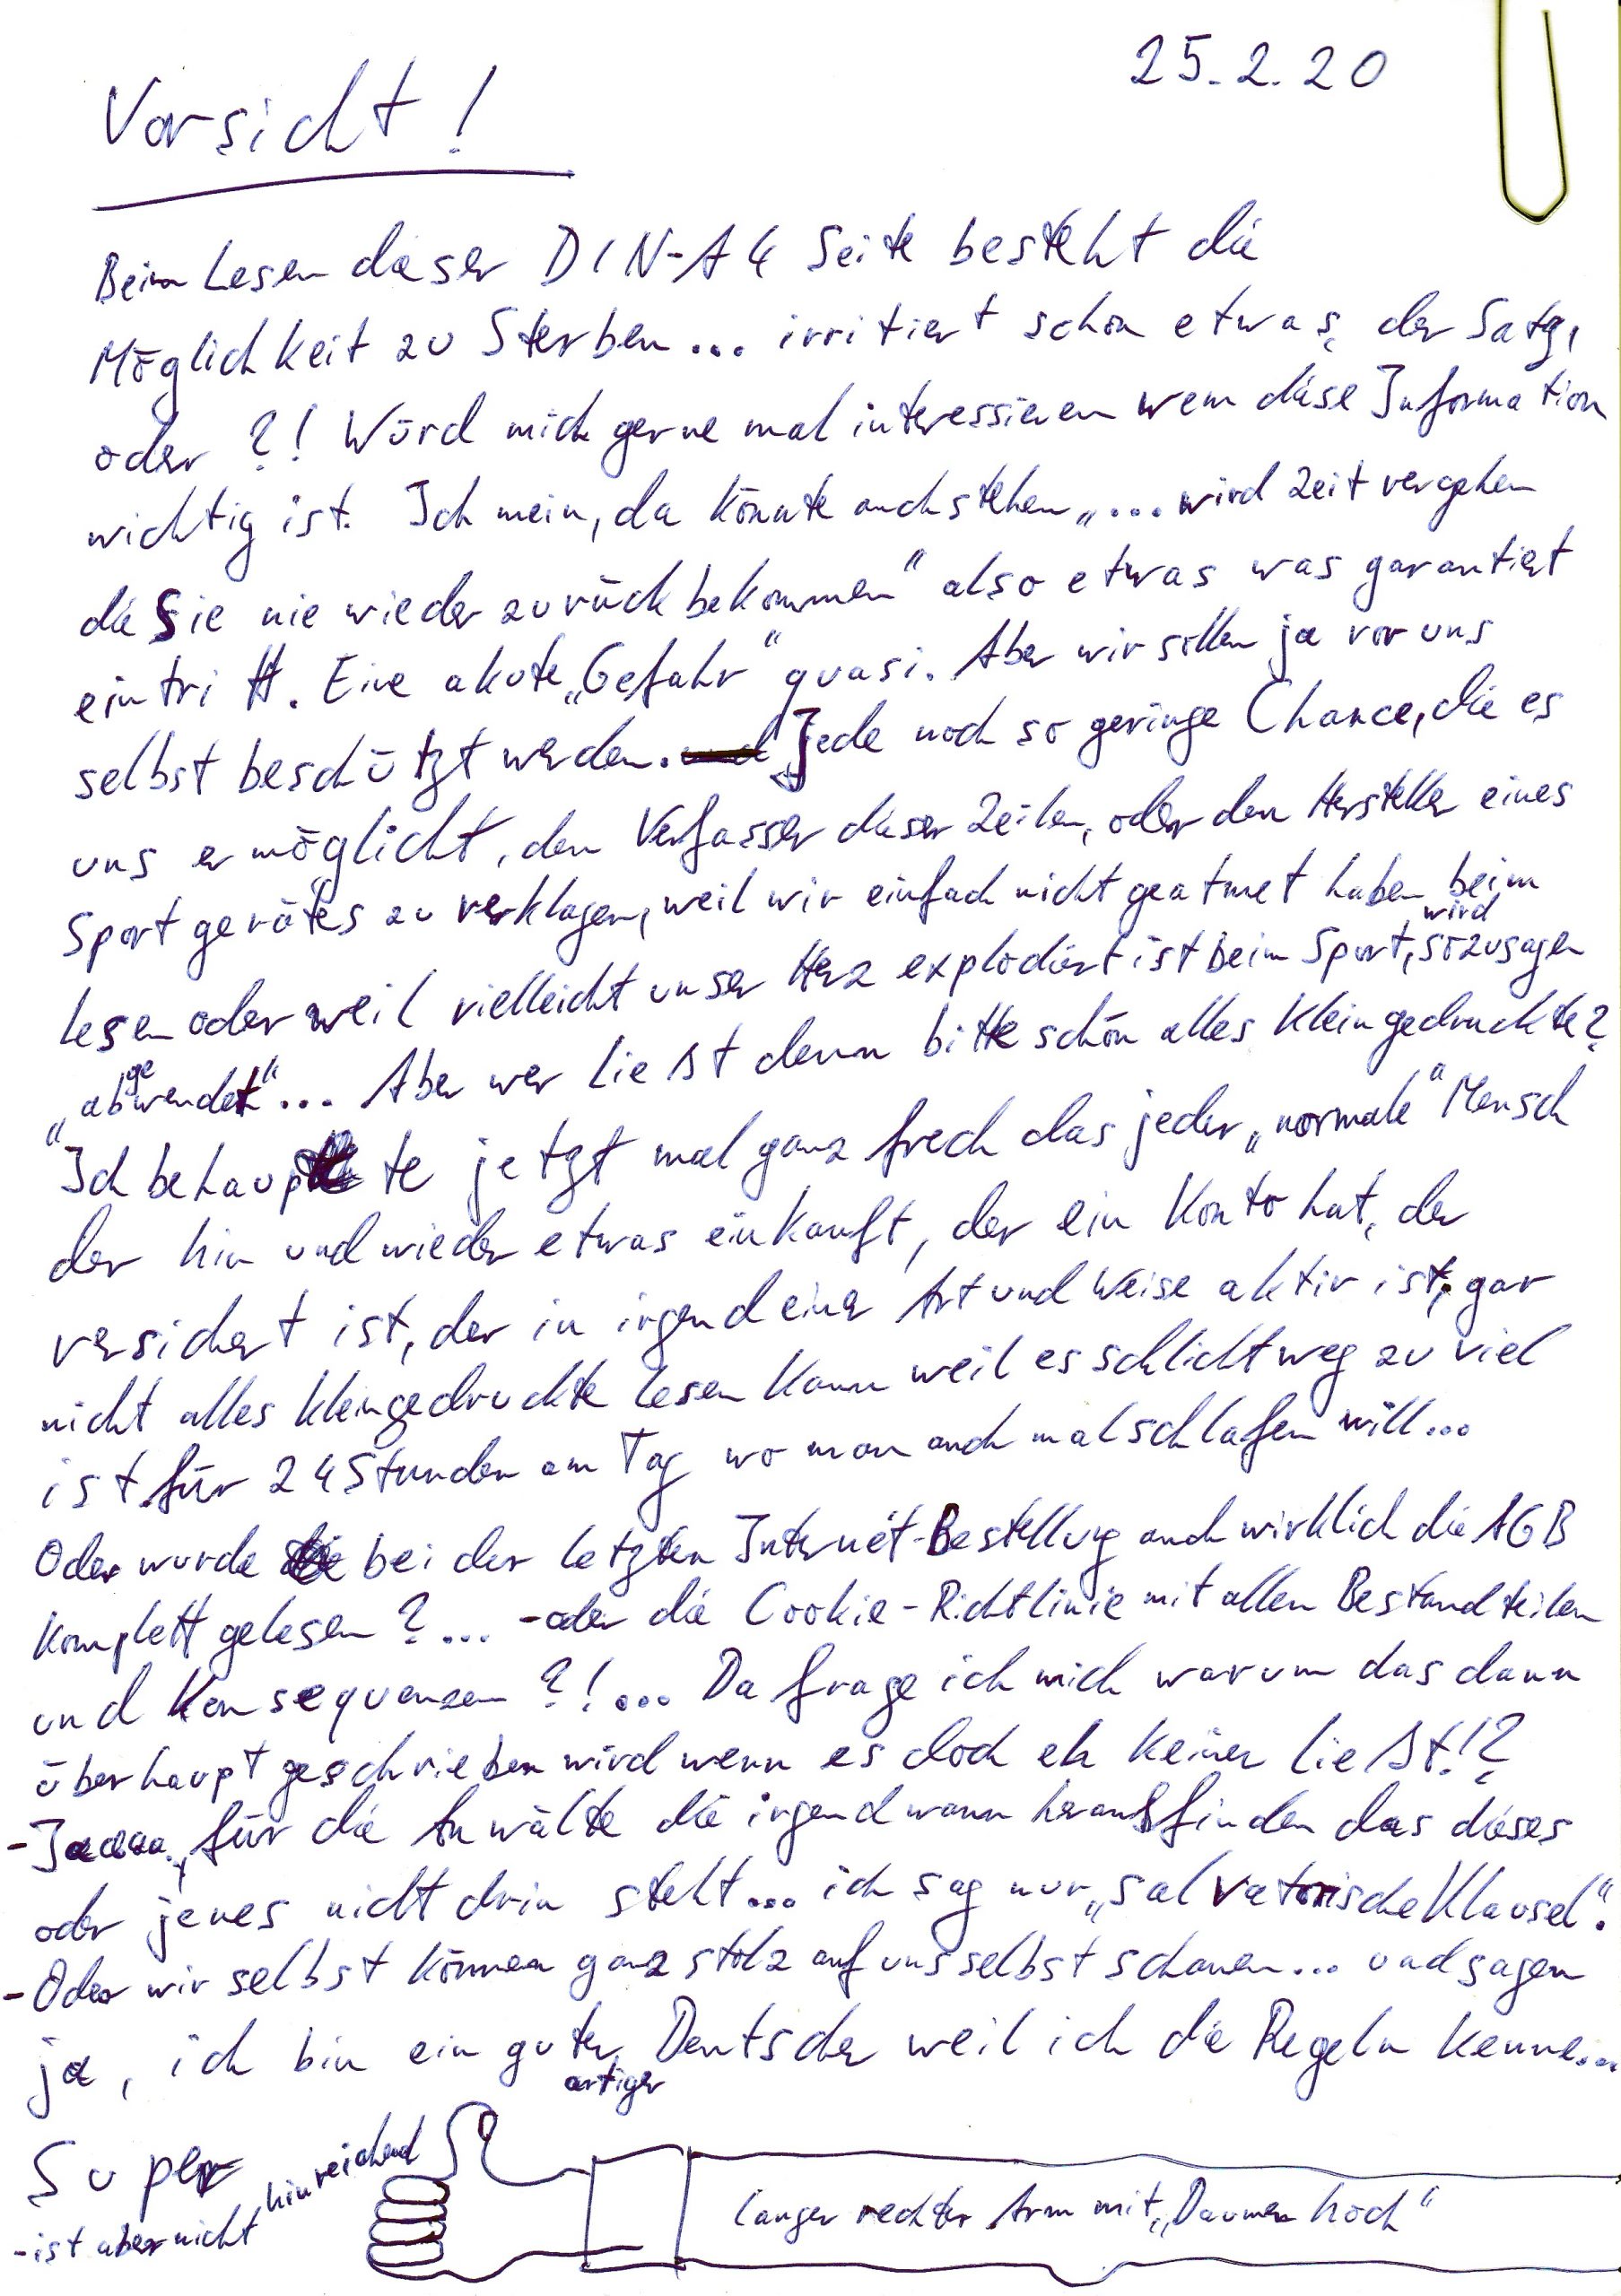 25.2.20
Vorsicht!
Beim Lesen dieser DIN-A4 Seite besteht die
Möglichkeit zu Sterben... irritiert schon etwas, der Satz,
oder ?! Würd mich gerne mal interessieren wem diese Information
wichtig ist. Ich mein, da könnte auch stehen „... wird Zeit vergehen
die Sie nie wieder zurück bekommen" also etwas was garantiert
eintritt. Eine akute „Gefahr" quasi. Aber wir sollen ja vor uns
selbst beschützt werden. Jede noch so geringe Chance, die es
uns ermöglicht, den Verfasser dieser Zeilen, oder den Hersteller eines
Sportgerätes zu verklagen, weil wir einfach nicht geatmet haben beim
lesen oder weil vielleicht unser Herz explodiert ist beim Sport, wird sozusagen
„abgewendet"... Aber wer ließt denn bitte schön alles Kleingedruckte?
"Ich behaupte jetzt mal ganz frech das jeder „normale" Mensch
der hin und wieder etwas einkauft, der ein Konto hat, der
versichert ist, der in irgend einer Art und Weise aktiv ist, gar
nicht alles kleingedruckte lesen kann weil es schlichtweg zu viel
ist für 24 Stunden am Tag wo man auch mal schlafen will...
Oder wurde bei der letzten Internet-Bestellung auch wirklich die AGB
komplett gelesen ?... -oder die Cookie-Richtlinie mit allen Bestandteilen
und Konsequenzen ?!... Da frage ich mich warum das dann
überhaupt geschrieben wird wenn es doch eh keiner ließt!?
-Jaaaa, für die Anwälte die irgendwann herausfinden das dieses
oder jenes nicht drin steht... ich sag nur „salvatorische Klausel".
-Oder wir selbst können ganz stolz auf uns selbst schauen... und sagen
ja, ich bin ein guter, Deutscher weil ich die Regeln kenne...
artiger
Super
-ist aber nicht hinreichend
langer rechter Arm mit „Daumen hoch"